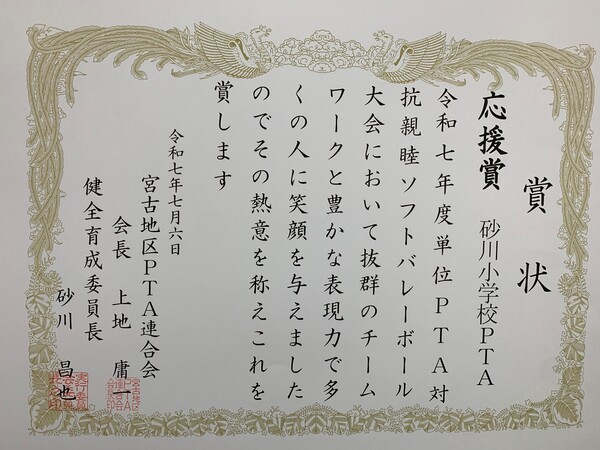 賞状
応援賞 砂川小学校PTA
令和七年度単位PTA対
抗親睦ソフトバレーボール
大会において抜群のチーム
ワークと豊かな表現力で多
くの人に笑顔を与えました
のでその熱意を称えこれを
賞します
令和七年七月六日
宮古地区PTA連合会
会長 上地 庸一
健全育成委員長
砂川 昌也